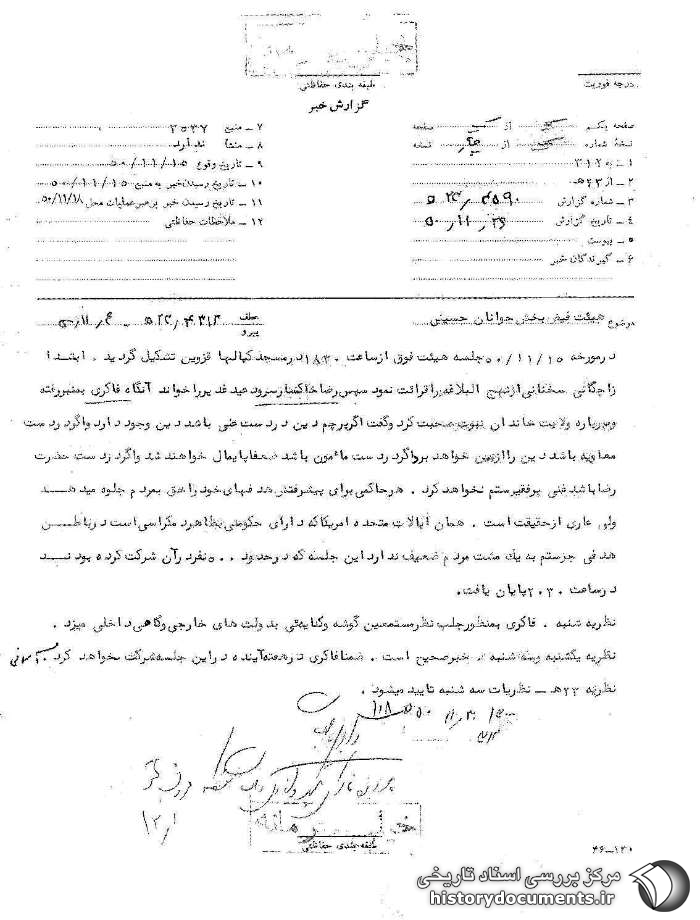 طبقه بندی حفاظتی
درجه فوریت
گزارش خبر
صفحه یکم از یک صفحه
نسخهٔ شماره از نسخه
۱ ـ به ۳۱۲
۲ ـ از ۲۳هـ
۳ ـ شماره گزارش
۴ ـ تاریخ گزارش
۵ ـ پیوست
۶ ـ گیرندگان خبر
۷ ـ منبع ۲۵۳۷
۸ ـ منشأ ندارد
۹ ـ تاریخ وقوع ۵۰/۱۱/۱۵
۱۰ ـ تاریخ رسیدن خبر به منبع ۵۰/۱۱/۱۵
۱۱ ـ تاریخ رسیدن خبر برهبرعملیات محل ۵۰/۱۱/۱۸
۱۲ ـ ملاحظات حفاظتی
موضوع هیئت فیض بخش جوانان حسینی
عطف
پیرو
درمورخه ۵۰/۱۱/۱۵ جلسه هیئت فوق ازساعت ۱۸۳۰ درمسجد کبابیها قزوین تشکیل گردید . ابتدا
زاجکانی سخنانی ازنهج البلاغه راقرائت نمود سپس رضا خاکسار سرود عید غدیر راخواند آنگاه فاکری بمنبر رفته
ودرباره ولایت خاندان نبوت صحبت کرد وگفت اگرپرچم دین دردست علی باشد دین وجود دارد واگردردست
معاویه باشد دین را ازبین خواهد برد اگردردست مأمون باشد ضعفا پایمال خواهند شد واگردردست حضرت
رضا باشد غنی برفقیر ستم نخواهد کرد . هرحاکمی برای پیشرفتش هدفهای خود را حق بمردم جلوه میدهد
ولی عاری ازحقیقت است . همان ایالات متحده امریکا که دارای حکومتی بظاهر دمکراسی است درباطن
هدفی جزستم به یك مشت مردم ضعیف ندارد این جلسه که درحدود ۵۰۰ نفر درآن شرکت کرده بودند
درساعت ۲۰۳۰ پایان یافت.
نظریه شنبه . فاکری بمنظورجلب نظرمستمعین گوشه وکنایه‌ئی بدولت های خارجی وگاهی داخلی میزد .
نظریه یکشنبه وسه شنبه . خبرصحیح است . ضمنا فاکری درهفته آینده دراین جلسه شرکت نخواهد کرد .
نظریه ۲۳هـ ـ نظریات سه شنبه تایید میشود .
طبقه بندی حفاظتی
۴۶ـ۱۲۰
مرکز بررسی اسناد تاریخی
historydocuments.ir